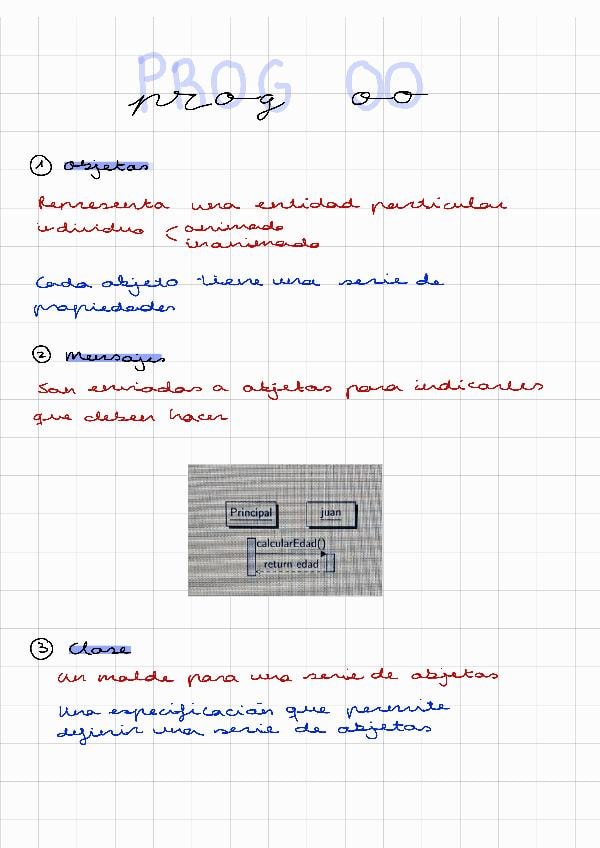 PROG OO
prog oo
1 Objetos
Representa una entidad particular
individuo < animado
inanimado
Cada objeto tiene una serie de
propiedades
2 Mensajes
Son enviados a objetos para indicarles
que deben hacer
Principal juan
calcularEdad()
return edad
3 Clase
un molde para una serie de objetos
Una especificación que permite
definir una serie de objetos